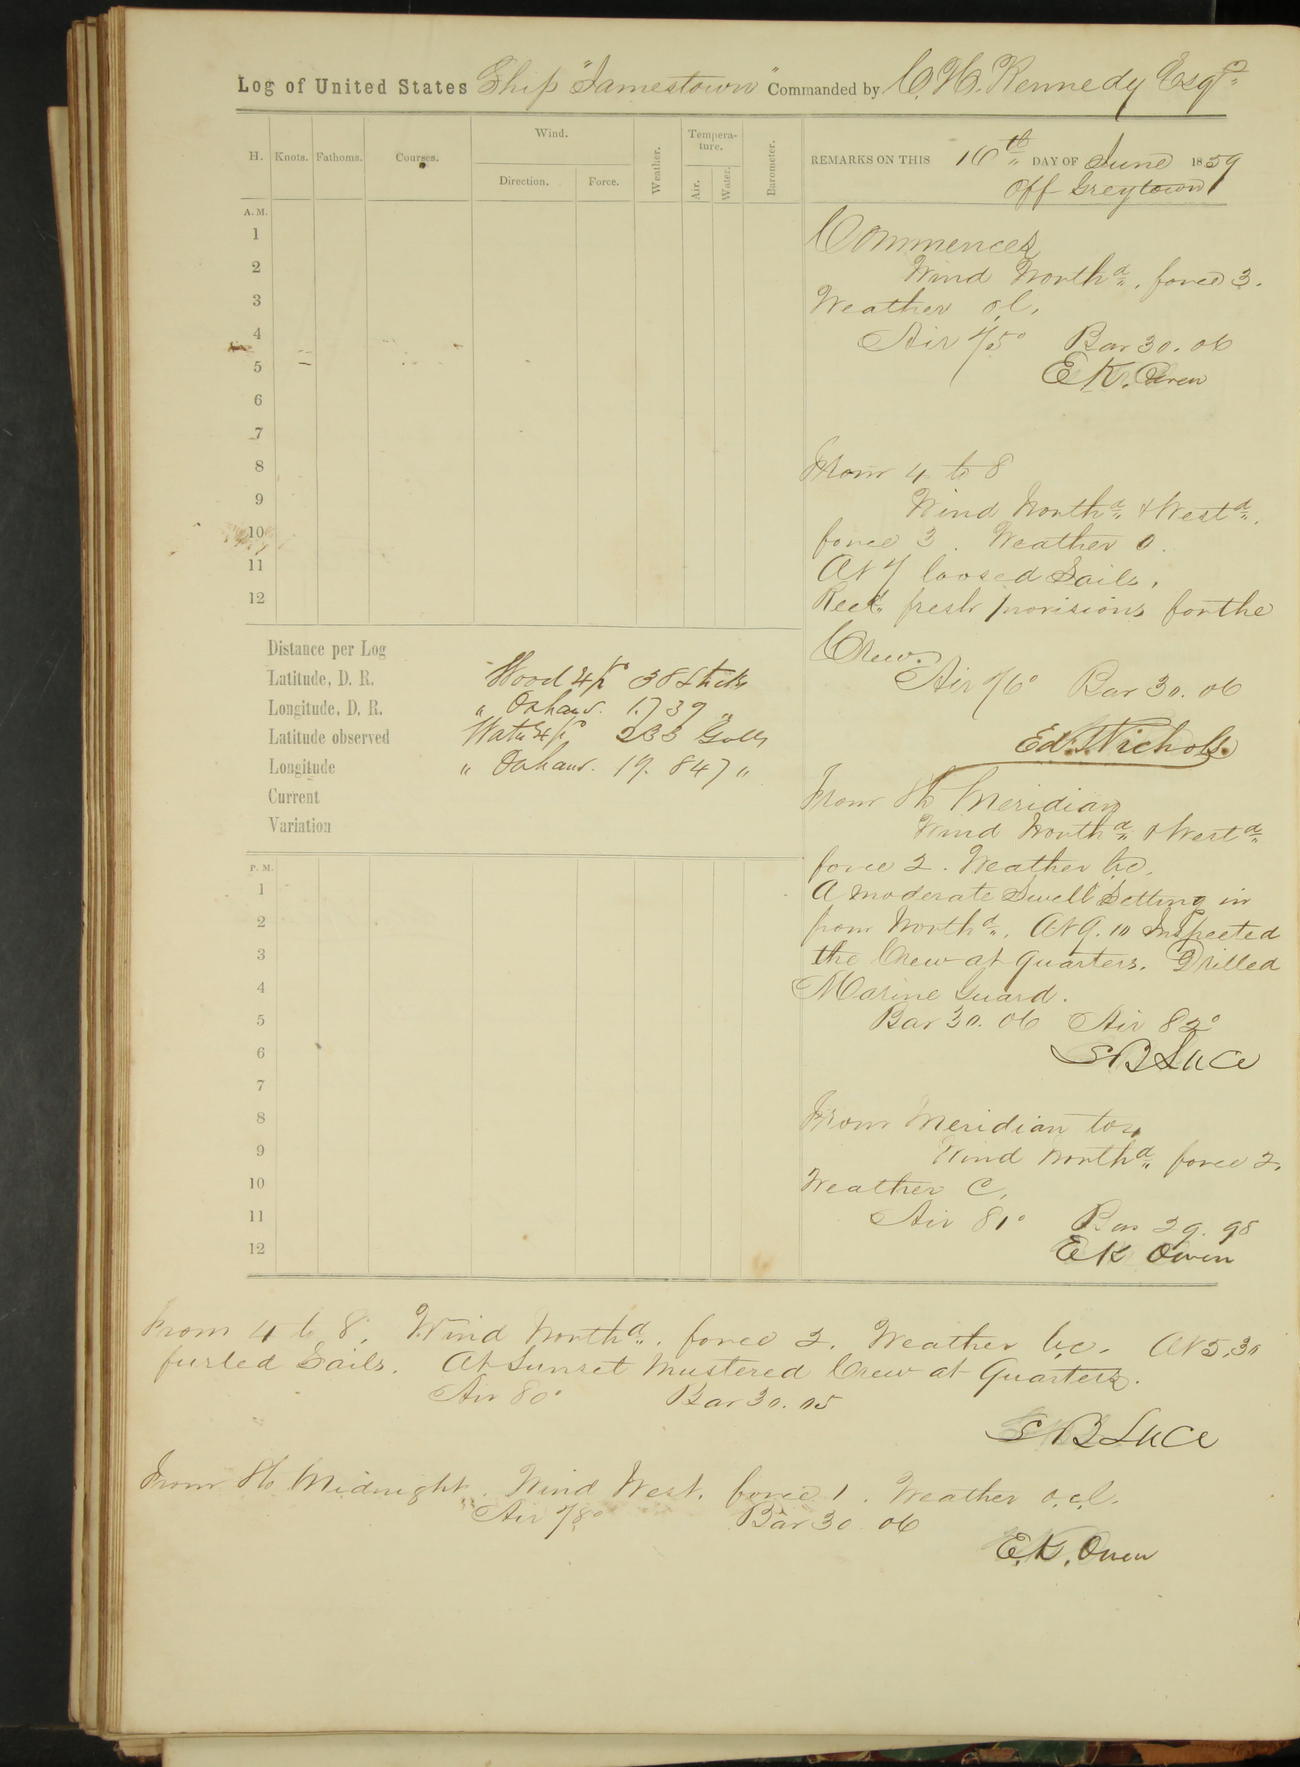 Log of United States Ship "Jamestown" Commanded by C. H. Kennedy Esqr
H. Knots. Fathoms. Courses. Wind. Direction. Force. Weather. Tempera-ture. Air. Water. Barometer.
REMARKS ON THIS 16th DAY OF June 1859
Off Greytown
A.M.
1
2
3
4
5
6
7
8
9
10
11
12
Commences
Wind Northd. force 3.
Weather o.l.
Air 75° Bar 30.06
E K. Owen
From 4 to 8
Wind Northd & Westd.
force 3. Weather o.
At 7 loosed Sails.
Recd. fresh provisions for the
Crew.
Air 76° Bar 30.06
Ed. T. Nichols.
Distance per Log
Latitude, D. R.
Longitude, D. R.
Latitude observed
Longitude
Current
Variation
Wood 38 Sticks
" On hand. 1.739 "
Water 233 Galls
" On hand. 19.847 "
From 8 to Meridian
Wind Northd & Westd
force 2. Weather b.c.
A moderate Swell Setting in
from Northd. At 9.10 Inspected
the Crew at quarters. Drilled
Marine Guard.
Bar 30.06 Air 82°
S B Luce
P.M.
1
2
3
4
5
6
7
8
9
10
11
12
From Meridian to 4
Wind Northd force 2.
Weather C.
Air 81° Bar 29.98
E K Owen
From 4 to 8. Wind Northd. force 2. Weather b.c. At 5.30
furled Sails. At Sunset Mustered Crew at Quarters.
Air 80° Bar 30.05
S B Luce
From 8 to Midnight. Wind West. force 1. Weather o.c.l.
Air 78° Bar 30.06
E. K. Owen